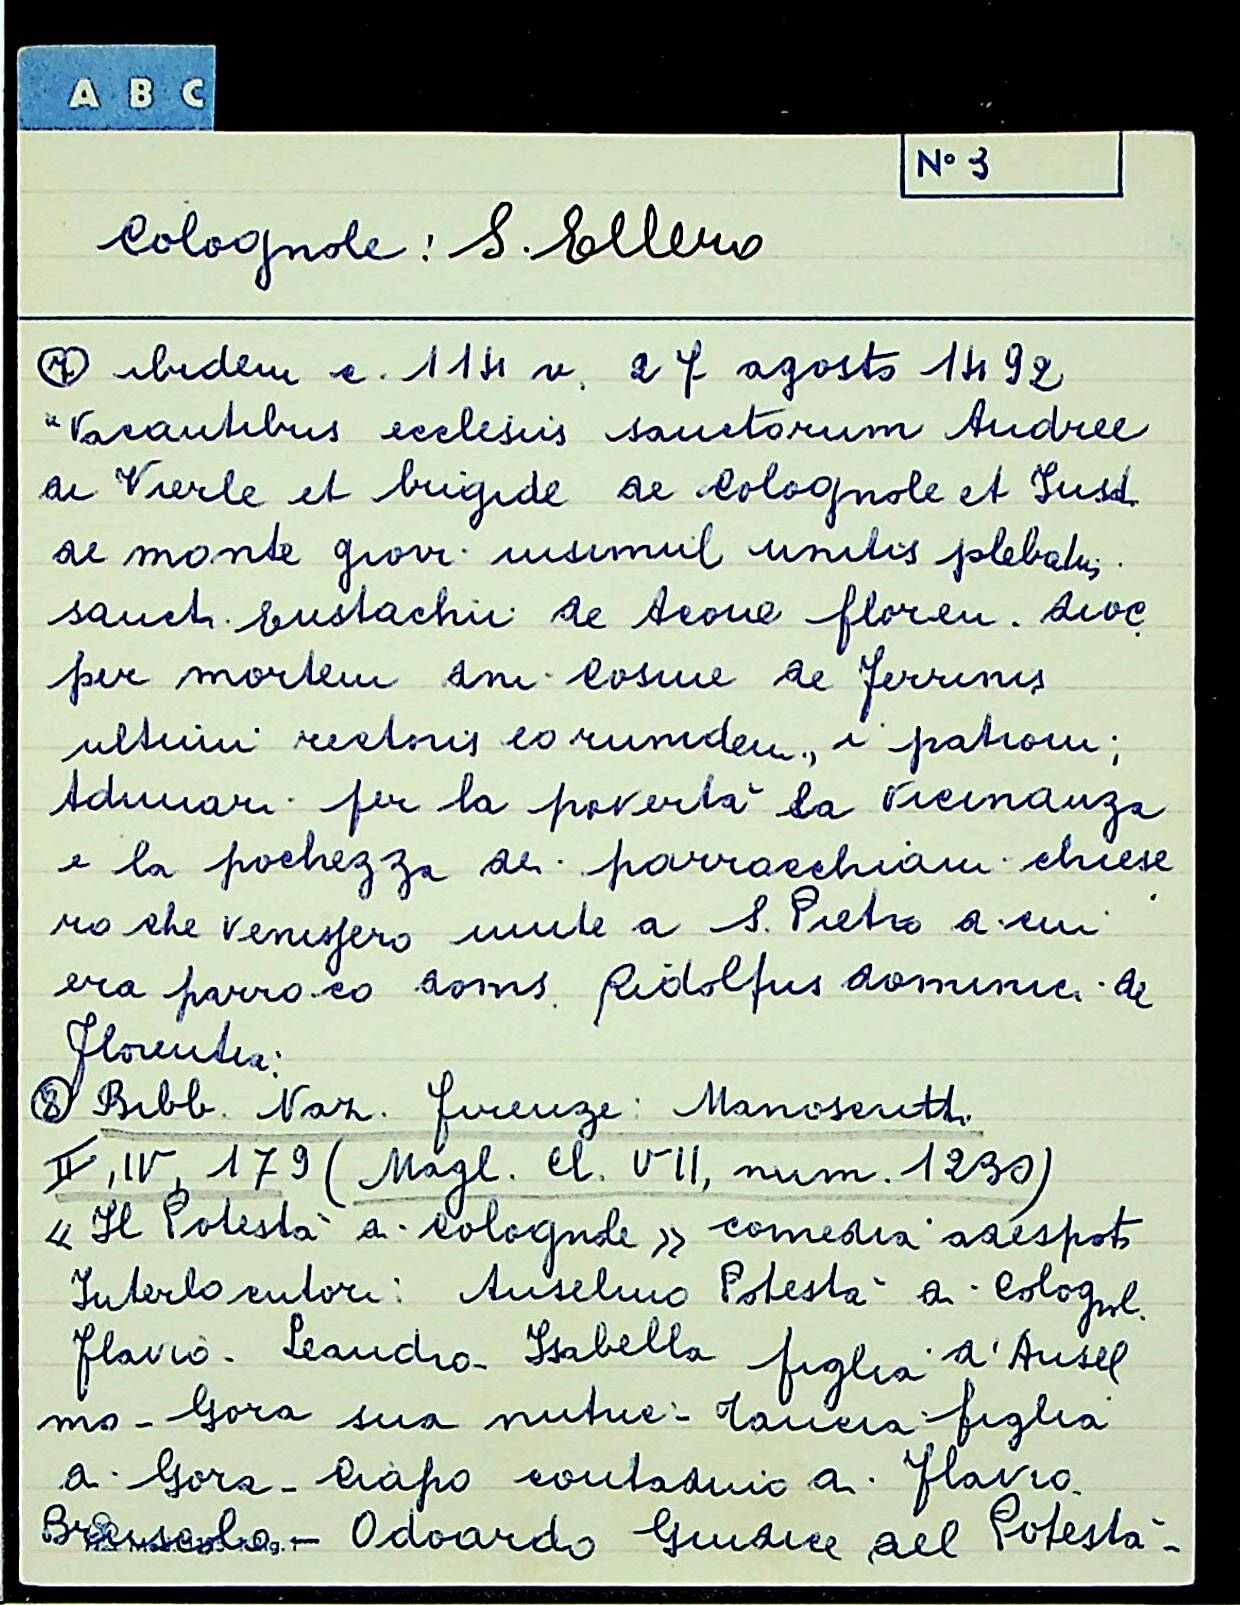 A B C
N° 3
Colognole: S. Ellero
⑦ ibidem c. 114 v. 27 agosto 1492
"Vacantibus ecclesiis sanctorum Andree
de Vierle et brigide de Colognole et Iust.
de monte giovi insimul unitis plebatus
sancti Eustachii de Acone floren. dioc.
per mortem dni Cosme de Ferrinis
ultimi rectoris eorumdem,, i patroni;
Adimari per la povertà la vicinanza
e la pochezza dei parrocchiani chiese
ro che venissero unite a S. Pietro di cui
era parroco doms. Ridolfus dominici de
Florentia.
⑧ Bibl. Naz. Firenze: Manoscritti
II, IV, 179 (Magl. Cl. VII, num. 1230)
« Il Potestà di Colognole » comedia adespota
Interlocutori: Anselmo Potestà di Colognol.
Flavio - Leandro - Isabella figlia d'Ansel
mo - Gora sua nutrice - Tancia figlia
di Gora - Ciapo contadino di Flavio
Bruscolo - Odoardo Giudice del Potestà -